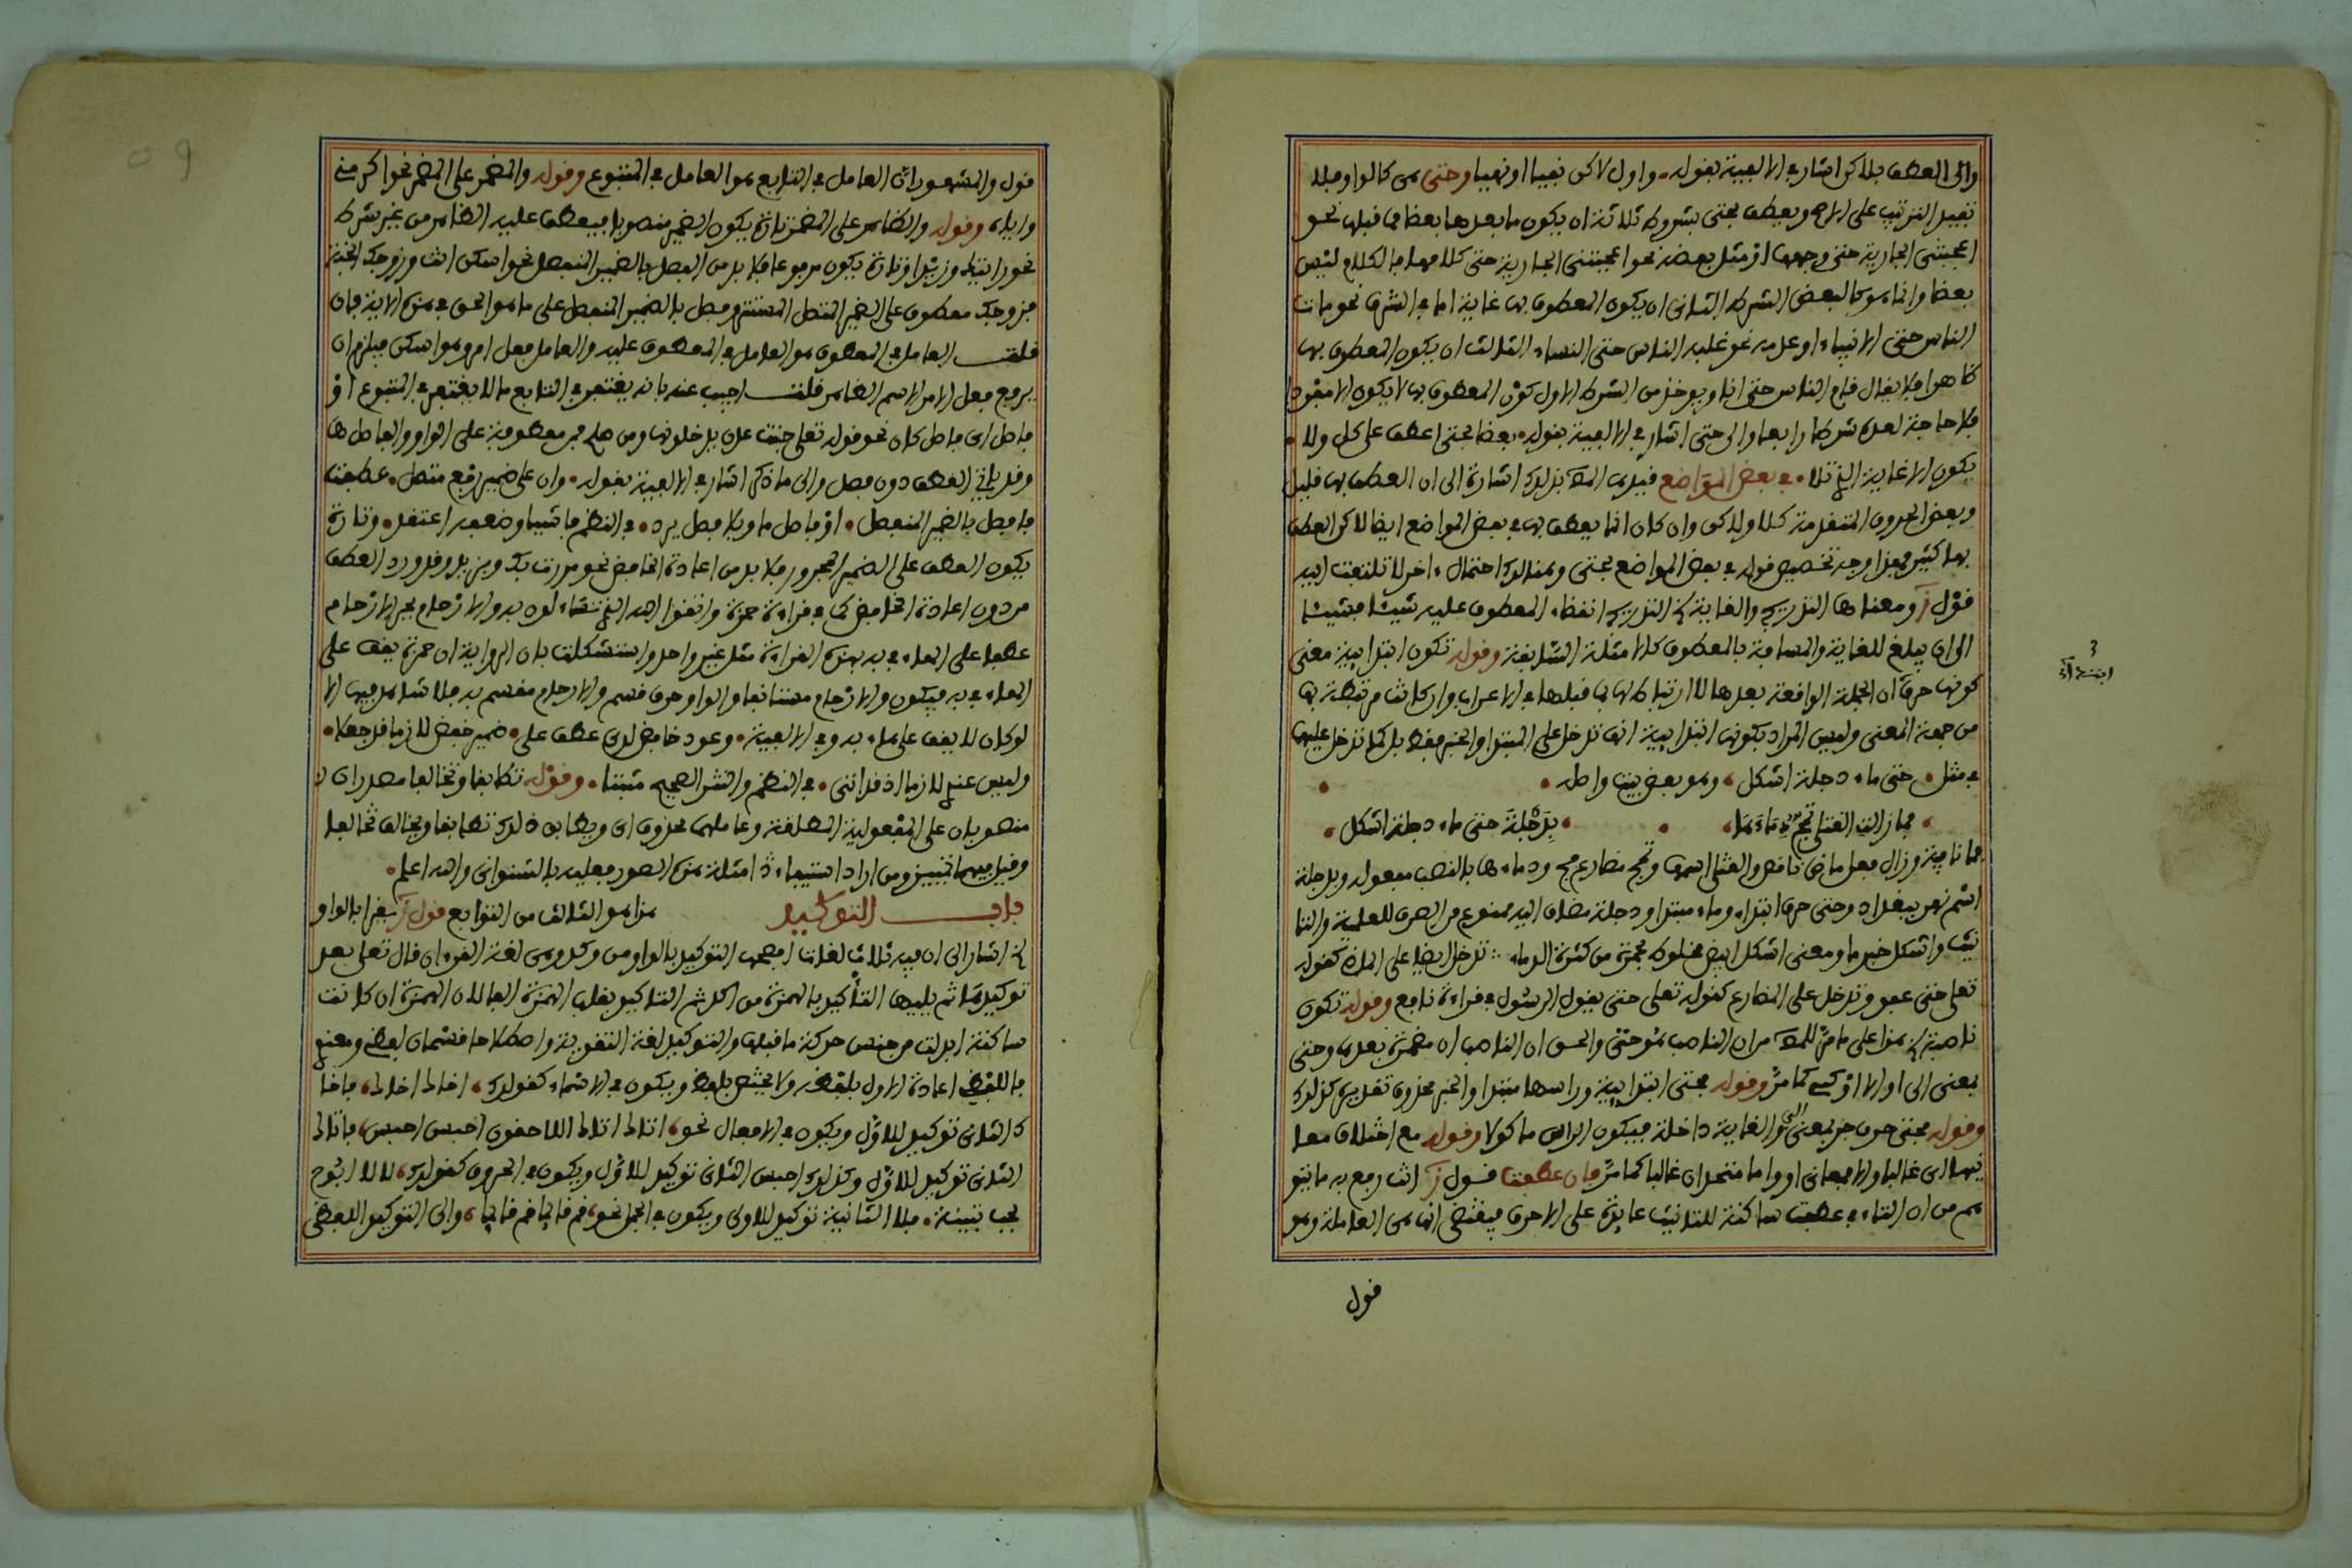 والى العطف بلاكن اشار في الالفية بقوله • واول لاكن نفيا او نهيا وحتى هي كالواو فلا
تفيد الترتيب على الاصح ويعطف بحتى بشروط ثلاثة ان يكون ما بعدها بعضا مما قبلها نحو
اعجبتني الجارية حتى وجهها او مثل بعضه نحو اعجبتني الجارية حتى كلامها فالكلام ليس
بعضا وانما هو كالبعض الشرط الثاني ان يكون المعطوف بها غاية اما في الشرف نحو مات
الناس حتى الانبياء او عدمه نحو غلبه الناس حتى النساء الثالث ان يكون المعطوف بها
ظاهرا فلا يقال قام الناس حتى انا ويوخذ من الشرط الاول كون المعطوف بها لا يكون الا مفردا
فلا حاجة لعده شرطا رابعا والى حتى اشار في الالفية بقوله • بعضا بحتى اعطف على كل ولا •
يكون الا غاية الذي تلا • في بعض المواضع قيد به المص بذلك اشارة الى ان العطف بها قليل
وبعض الحروف المتقدمة كلا ولاكن وان كان انما يعطف بها في بعض المواضع ايضا لاكن العطف
بها كثير فهذا وجه تخصيص قوله في بعض المواضع بحتى وهنالك احتمال اخر لا تلتفت اليه
قول ز ومعناها التدريج والغاية الخ التدريج انقضاء المعطوف عليه شيئا فشيئا
الى ان يبلغ للغاية والتسامية بالمعطوف كالامثلة السابقة وقوله تكون ابتدائية معنى
كونها حرف ان الجملة الواقعة بعدها لا ارتباط لها بما قبلها في الاعراب وان كانت مرتبطة بها
من جهة المعنى وليس المراد بكونها ابتدائية انها تدخل على المبتدا والخبر فقط بل كما تدخل عليها
في مثل • حتى ماء دجلة اشكل ، وهو بعض بيت واصله •
، فما زالت القتلى تمج دماءها ، • ، بدجلة حتى ماء دجلة اشكل ،
فما نافية وزال فعل ماض ناقص والقتلى اسمها وتمج مضارع مج ودماءها بالنصب مفعوله وبدجلة
اسم نهر ببغداد وحتى حرف ابتداء وماء مبتدا ودجلة مضاف اليه ممنوع من الصرف للعلمية والتا
نيث واشكل خبر ما ومعنى اشكل ابيض مخلوط بحمرة من كثرة الدماء تدخل ايضا على الماضي كقوله
تعلى حتى عفوا وتدخل على المضارع كقوله تعلى حتى يقول الرسول في قراءة نافع وقوله تكون
ناصبة الخ هذا على ما مر للمص من ان الناصب هو حتى والحق ان الناصب ان مضمرة بعدها وحتى
بمعنى الى او الا او كي كما مر وقوله فحتى ابتدائية وراسها مبتدا والخبر محذوف تقديره كذلك
وقوله فحتى حرف جر بمعنى الى والغاية داخلة فيكون الراس ماكولا وقوله مع اختلاف معا
نيها اي غالبا والا فمعاني او واما متحدان غالبا كما مر فان عطفت قول ز انث رفع به ما يتو
هم من ان التاء في عطفت ساكنة للتانيث عائدة على الاحرف فيقتضي انها هي العاملة وهو
قول
ابتدائية
قول والمشهور ان العامل في التابع هو العامل في المتبوع وقوله والمضمر على المضمر نحو اكرمني
واياه وقوله والظاهر على المضمر تارة يكون الضمير منصوبا فيعطف عليه الظاهر من غير شرط
نحو رايتك وزيدا وتارة يكون مرفوعا فلا بد من الفصل بالضمير المنفصل نحو اسكن انت وزوجك الجنة
فزوجك معطوف على الضمير المتصل المستتر وفصل بالضمير المنفصل على ما هو الحق في هذه الاية فان
قلت العامل في المعطوف هو العامل في المعطوف عليه والعامل فعل امر وهو اسكن فيلزم ان
يرفع فعل الامر الاسم الظاهر قلت اجيب عنه بانه يغتفر في التابع ما لا يغتفر في المتبوع او
فاصل اي فاصل كان نحو قوله تعلى جنت عدن يدخلونها ومن صلح فمن معطوفة على الواو والفاصل ها
وقد ياتي العطف دون فصل والى ما ذكر اشار في الالفية بقوله • وان على ضمير رفع متصل • عطفت
فافصل بالضمير المنفصل • او فاصل ما وبلا فصل يرد • في النظم فاشيا وضعفه اعتقد • وتارة
يكون العطف على الضمير المجرور فلا بد من اعادة الخافض نحو مررت بك وبزيد وقد ورد العطف
من دون اعادة الخافض كما في قراءة حمزة واتقوا الله الذي تساءلون به والارحام بجر الارحام
عطفا على الهاء في به بهذه القراءة مثل غير واحد واستشكلت بان الرواية ان حمزة يقف على
الهاء في به فيكون والارحام مستانفا والواو حرف قسم والارحام مقسم به فلا شاهد فيها الا
لو كان لا يقف على هاء به وفي الالفية • وعود خافض لدى عطف على • ضمير خفض لازما قد جعلا •
وليس عندي لازما اذ قد اتى • في النظم والنثر الصحيح مثبتا • وقوله تطابقا وتخالفا مصدران
منصوبان على المفعولية المطلقة وعاملهما محذوف اي ويطابق ذلك تطابقا ويخالف تخالفا
وقيل فيهما تمييز ومن اراد استيفاء امثلة هذه الصور فعليه بالشنواني والله اعلم •
باب التوكيد هذا هو الثالث من التوابع قول ز يقرا بالواو
الخ اشار الى ان فيه ثلاث لغات افصحها التوكيد بالواو من وكد وهي لغة القرءان قال تعلى بعد
توكيدها ثم يليها التأكيد بالهمزة من اكد ثم التاكيد بقلب الهمزة الفا لان الهمزة ان كانت
ساكنة ابدلت من جنس حركة ما قبلها والتوكيد لغة التقوية واصطلاحا قسمان لفظي ومعنوي
فاللفظي اعادة الاول بلفظه ولا يختص بلفظ ويكون في الاسماء كقولك ، اخاك اخاك ، فاخا
ك الثاني توكيد للاول ويكون في الافعال نحو ، اتاك اتاك اللاحقون احبس احبس ، فاتاك
الثاني توكيد للاول وكذلك احبس الثاني توكيد للاول ويكون في الحروف كقولك ، لا لا ابوح
بحب بثينة • فلا الثانية توكيد للاولى ويكون في الجمل نحو ، قم قائما قم قائما ، والى التوكيد اللفظي